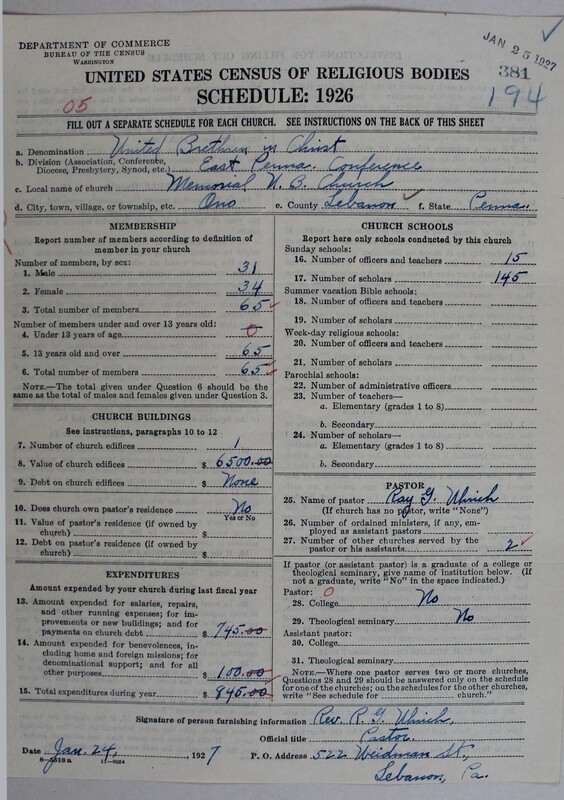 DEPARTMENT OF COMMERCE
BUREAU OF THE CENSUS
WASHINGTON
JAN 25 1927
381
194
UNITED STATES CENSUS OF RELIGIOUS BODIES
SCHEDULE: 1926
05
FILL OUT A SEPARATE SCHEDULE FOR EACH CHURCH. SEE INSTRUCTIONS ON THE BACK OF THIS SHEET
a. Denomination United Brethren in Christ
b. Division (Association, Conference, Diocese, Presbytery, Synod, etc.) East Penna. Conference
c. Local name of church Memorial U. B. Church
d. City, town, village, or township, etc. Ono e. County Lebanon f. State Penna.
MEMBERSHIP
Report number of members according to definition of
member in your church
Number of members, by sex:
1. Male 31
2. Female 34
3. Total number of members 65
Number of members under and over 13 years old:
4. Under 13 years of age 0
5. 13 years old and over 65
6. Total number of members 65
NOTE.—The total given under Question 6 should be
same as the total of males and females given under Question 3.
CHURCH BUILDINGS
See instructions, paragraphs 10 to 12
7. Number of church edifices 1
8. Value of church edifices $ 6500.00
9. Debt on church edifices $ None
10. Does church own pastor's residence No
Yes or No
11. Value of pastor's residence (if owned by
church) $
12. Debt on pastor's residence (if owned by
church) $
EXPENDITURES
Amount expended by your church during last fiscal year
13. Amount expended for salaries, repairs,
and other running expenses; for im-
provements or new buildings; and for
payments on church debt $ 745.00
14. Amount expended for benevolences,
including home and foreign missions; for
denominational support; and for all
other purposes $ 100.00
15. Total expenditures during year $ 845.00
CHURCH SCHOOLS
Report here only schools conducted by this church
Sunday schools:
16. Number of officers and teachers 15
17. Number of scholars 145
Summer vacation Bible schools:
18. Number of officers and teachers
19. Number of scholars
Week-day religious schools:
20. Number of officers and teachers
21. Number of scholars
Parochial schools:
22. Number of administrative officers
23. Number of teachers—
a. Elementary (grades 1 to 8)
b. Secondary
24. Number of scholars—
a. Elementary (grades 1 to 8)
b. Secondary
PASTOR
25. Name of pastor Ray G. Ulrich
(If church has no pastor, write "None")
26. Number of ordained ministers, if any, em-
ployed as assistant pastors
27. Number of other churches served by the
pastor or his assistants 2
If pastor (or assistant pastor) is a graduate of a college or
theological seminary, give name of institution below. (If
not a graduate, write "No" in the space indicated.)
Pastor: 0
28. College No
29. Theological seminary No
Assistant pastor:
30. College
31. Theological seminary
NOTE.—Where one pastor serves two or more churches,
Questions 28 and 29 should be answered only on the schedule
for one of the churches; on the schedules for the other churches,
write "See schedule for church."
Signature of person furnishing information Rev. R. G. Ulrich,
Official title Pastor
Date Jan. 24, 1927 P. O. Address 522 Weidman St.,
8—5518a 11—9084 Lebanon, Pa.